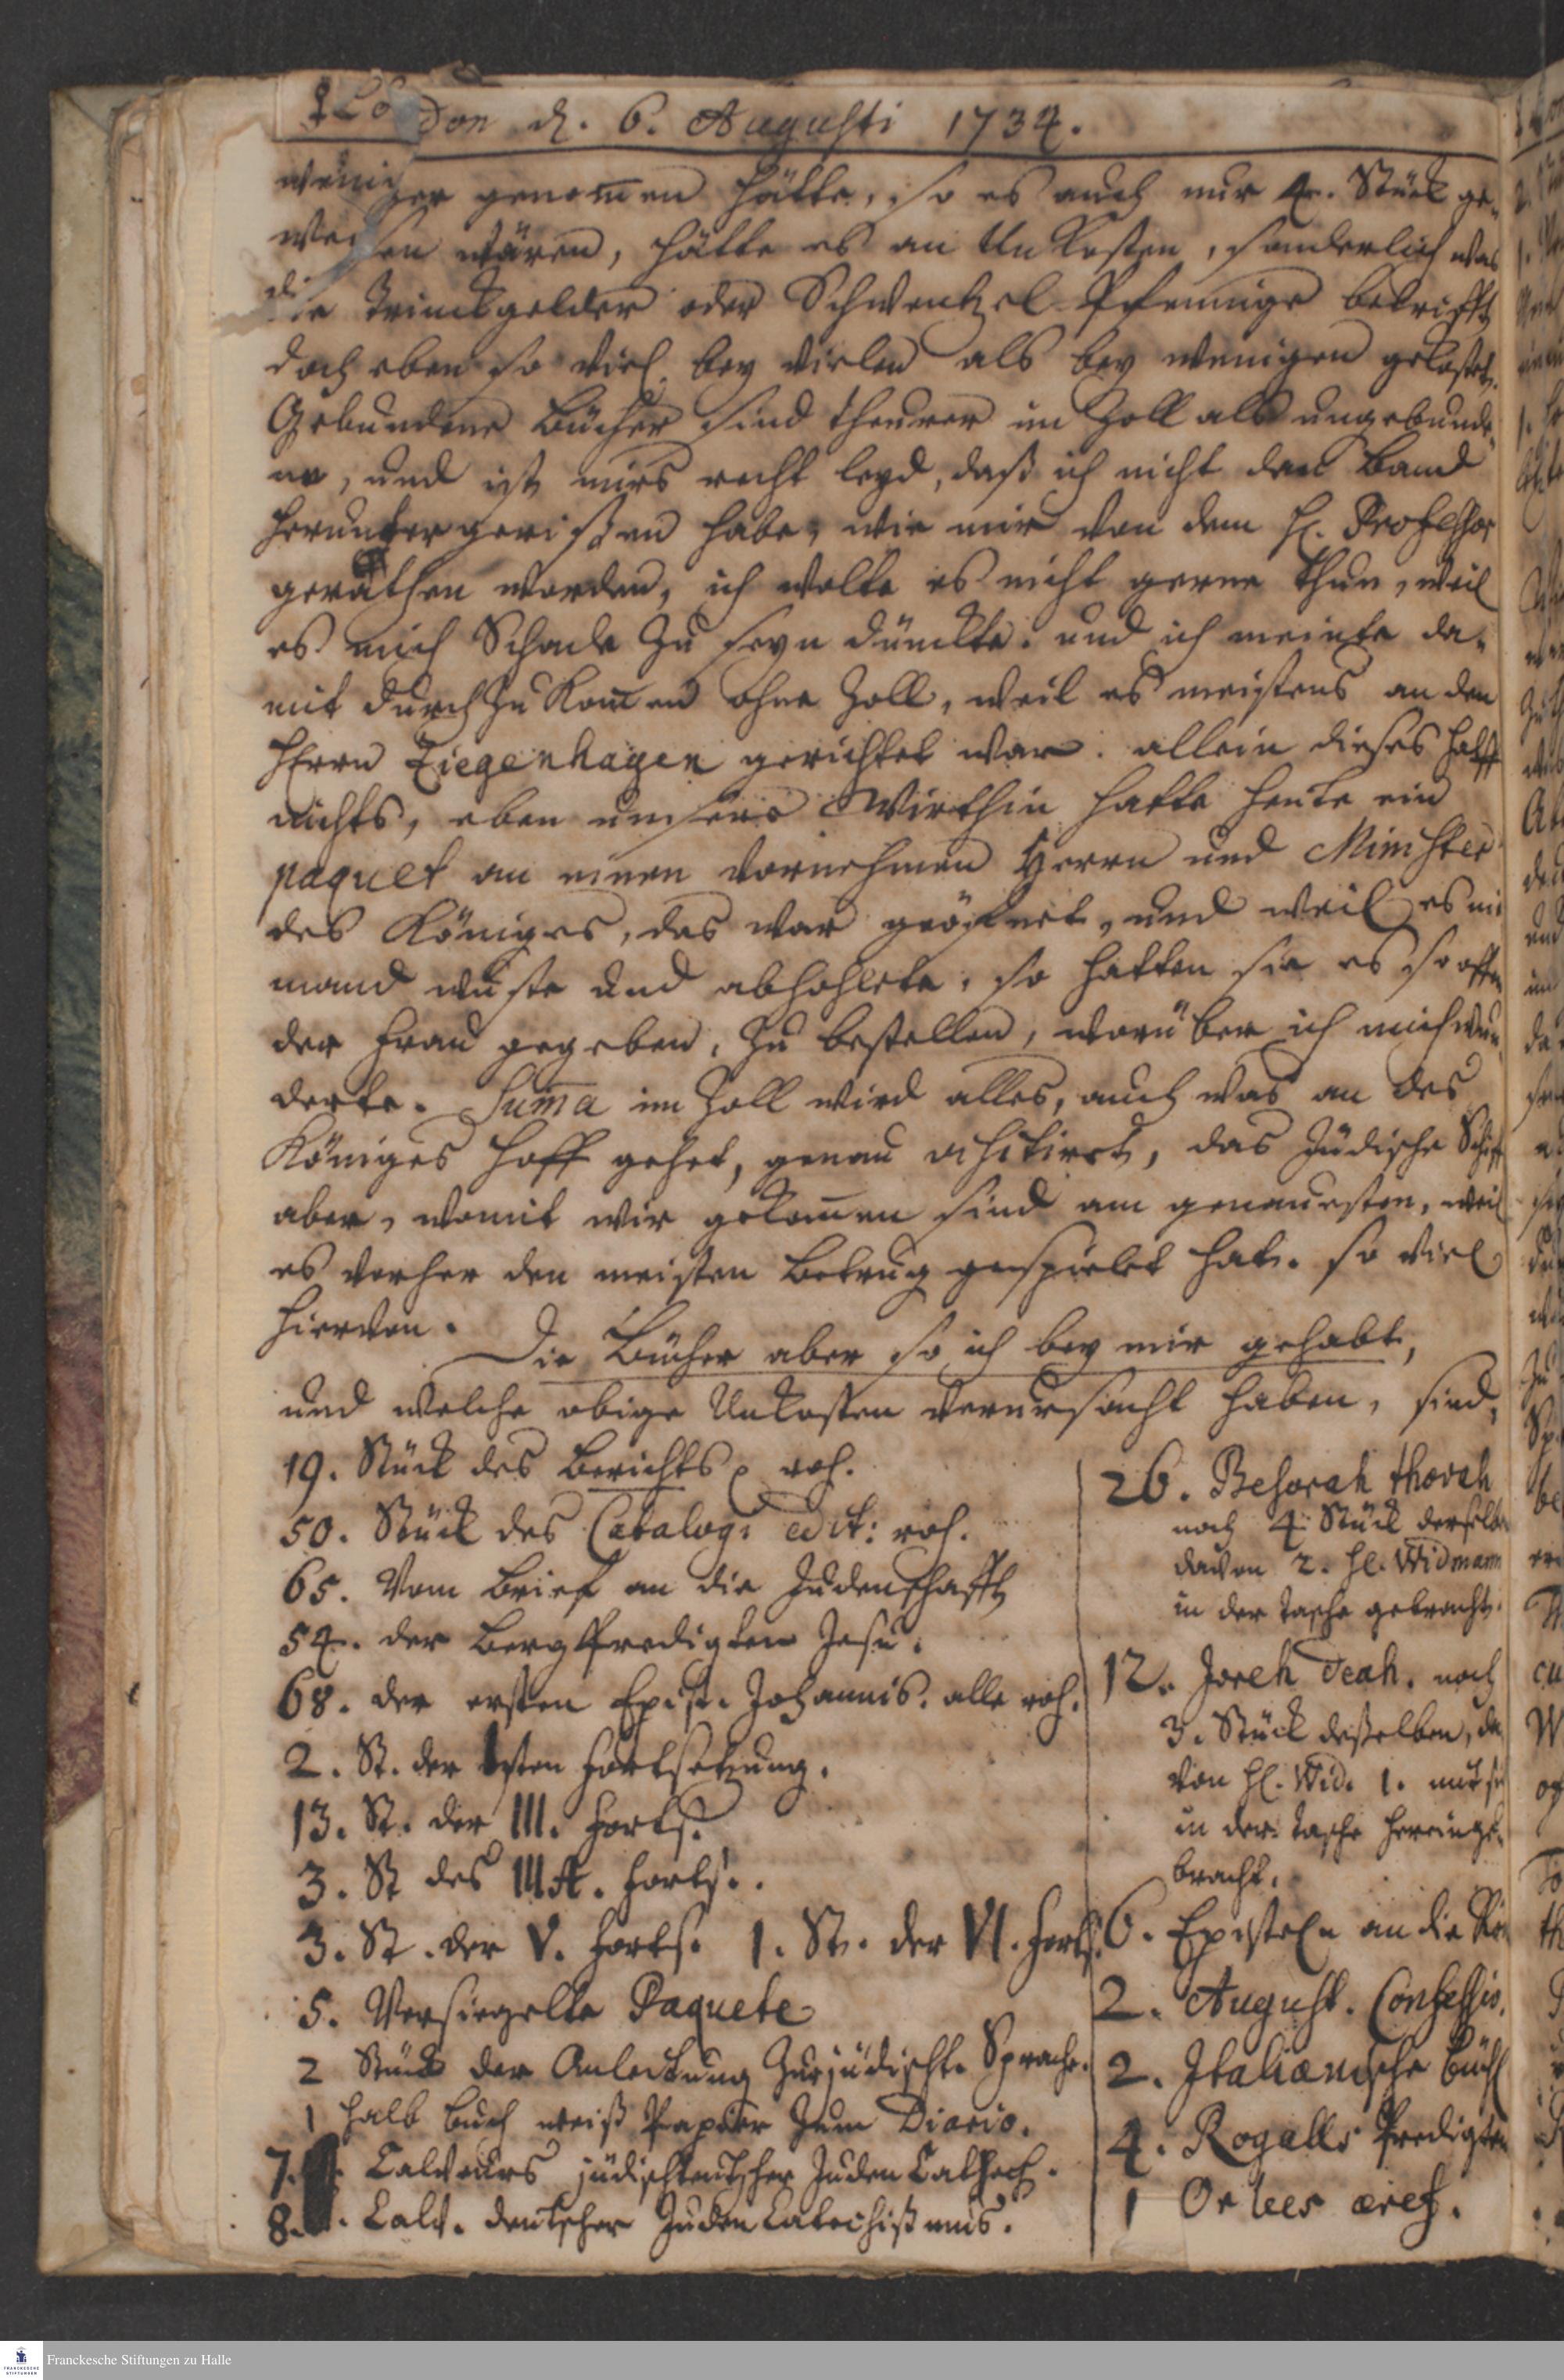 London d. 6. Augusti 1734.
weniger genom̄en hätte, so es auch nur 4. Stück ge-
wesen wären, hätte es an Unkosten, sonderlich was
die Trinckgelder oder Schwentzel-Pfennige betrifft
doch eben so viel bey vielen als bey wenigen gekostet.
Gebundene Bücher sind theurer im Zoll als ungebunde-
ne, und ist mirs recht leyd, daß ich nicht den Band
herunter gerißen habe, wie mir von dem H. Professor
gerathen worden, ich wolte es nicht gerne thun, weil
es mich Schade zu seyn dünckte: und ich meinte da-
mit durch zu kom̄en ohne Zoll, weil es meistens an den
Herrn Ziegenhagen gerichtet war. allein dieses halff
nichts, eben unsere Wirthin hatte heute ein
paquet an einen vornehmen Herrn und Minister
des Königes, das war geöfnet, und weil es nie-
mand wuste und abhohlete, so hatten sie es so offen
der Frau gegeben, zu bestellen, worüber ich mich wun-
derte. Sum̄a im Zoll wird alles, auch was an des
Königes Hoff gehet, genau visitiret, das Jüdische Schiff
aber, womit wir gekom̄en sind am genauesten, weil
es vorher den meisten Betrug gespielet hat. so viel
hiervon. Die Bücher aber so ich bey mir gehabt,
und welche obige Unkosten verursacht haben, sind,
19. Stück des Berichts roh.
50. Stück des Catalogi edit: roh.
65. Vom Brief an die Judenschafft
54. der Bergpredigten Jesu.
68. der ersten Epist. Johannis. alle roh.
2. St. der 1sten Fortsetzung.
13. St. der III. Forts.
3. St des Forts.
3. St. der V. Forts. 1. St. der VI. Forts.
5. Versiegelte Paquete
2 Stück der Anleitung zur jüdischt. Sprache.
1 halb Buch weiß Papier zum Diario.
7. Calvoers jüdischteutscher Juden Cathech.
8. Calv. deutscher Juden Catechißmus.
26. Besorah thovah
noch 4 Stück derselben
davon 2. H. Widmann
in der Tasche gebracht.
12. Joreh deah. noch
3. Stück deßelben, da
von H. Wid. 1. mit sich
in der Tasche hereinge-
bracht.
6. Episteln an die Rö
2. August. Confessio.
2. Italiænische Büch
4. Rogalls Predigten
1 Or lees
Franckesche Stiftungen zu Halle